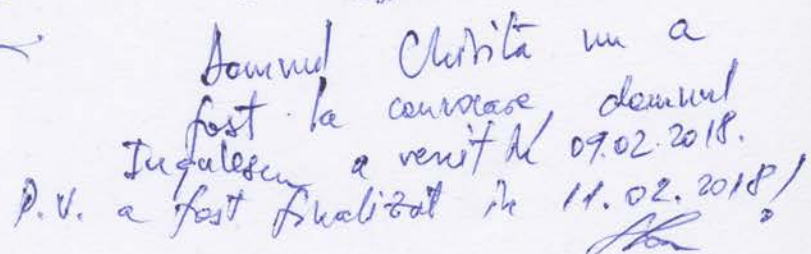 Domnul Chiriță nu a
fost la convocare, domnul
a venit în 09.02.2018.
P.V. a fost finalizat în 11.02.2018!